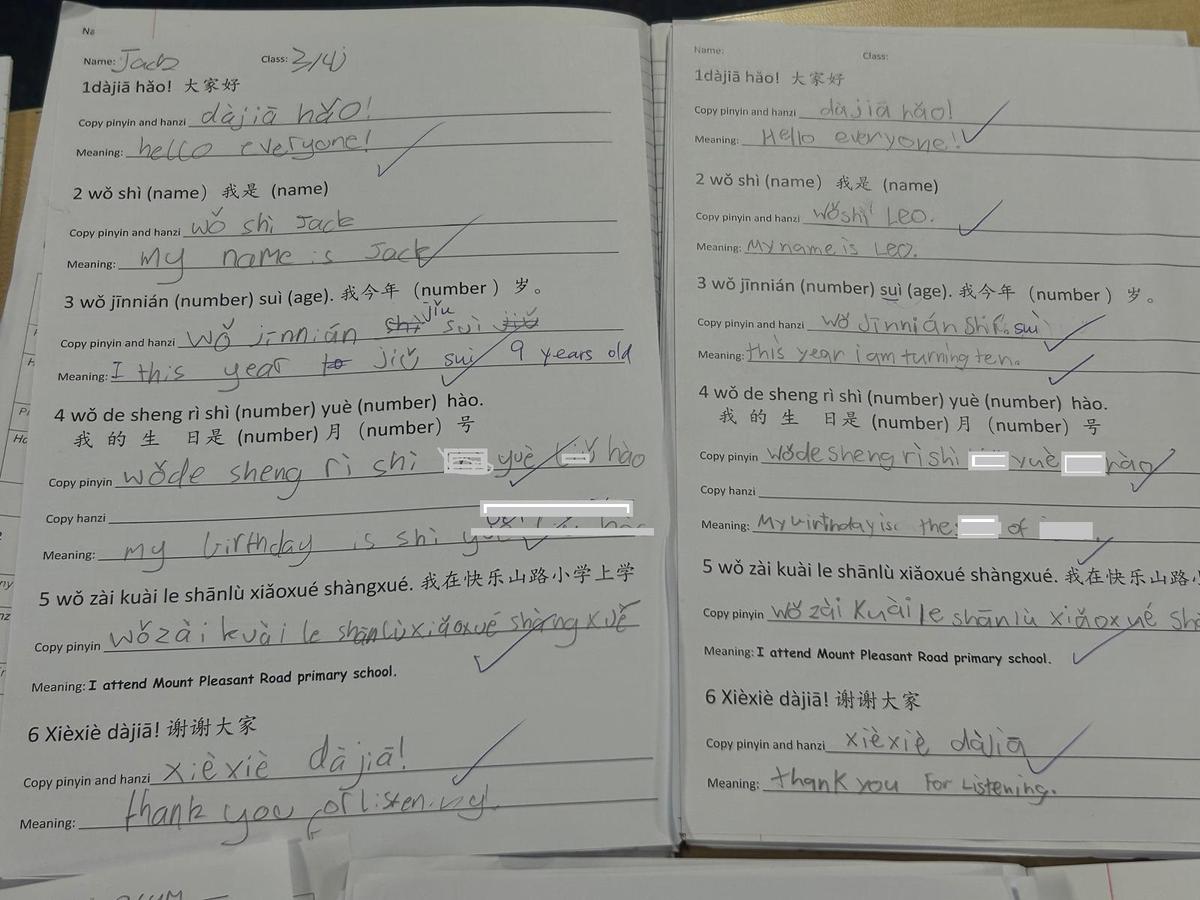 Na
Name: Jack Class: 3/4j
1dàjiā hǎo! 大家好
Copy pinyin and hanzi dàjiā hǎo!
Meaning: hello everyone!
2 wǒ shì (name) 我是 (name)
Copy pinyin and hanzi wǒ shì Jack
Meaning: my name is Jack
3 wǒ jīnnián (number) suì (age). 我今年 (number) 岁。
jiǔ
Copy pinyin and hanzi wǒ jīnnián suì
Meaning: I this year jiǔ sui 9 years old
4 wǒ de sheng rì shì (number) yuè (number) hào.
我 的 生 日是 (number) 月 (number) 号
Copy pinyin wǒde sheng rì shì yuè hào
Copy hanzi
Meaning: my birthday is shì
5 wǒ zài kuài le shānlù xiǎoxué shàngxué. 我在快乐山路小学上学
Copy pinyin wǒzài kuài le shānlùxiǎoxué shàngxué
Meaning: I attend Mount Pleasant Road primary school.
6 Xièxiè dàjiā! 谢谢大家
Copy pinyin and hanzi xièxiè dàjiā!
Meaning: thank you for listening!
Name: Class:
1dàjiā hǎo! 大家好
Copy pinyin and hanzi dàjiā hǎo!
Meaning: Hello everyone!
2 wǒ shì (name) 我是 (name)
Copy pinyin and hanzi wǒshì Leo.
Meaning: My name is Leo.
3 wǒ jīnnián (number) suì (age). 我今年 (number) 岁。
Copy pinyin and hanzi wǒ jīnnián shí. suì
Meaning: this year i am turning ten.
4 wǒ de sheng rì shì (number) yuè (number) hào.
我 的 生 日是 (number) 月 (number) 号
Copy pinyin wǒde sheng rì shì yuè hào
Copy hanzi
Meaning: My birthday is the of
5 wǒ zài kuài le shānlù xiǎoxué shàngxué. 我在快乐山路
Copy pinyin wǒ zài kuài le shānlù xiǎoxué
Meaning: I attend Mount Pleasant Road primary school.
6 Xièxiè dàjiā! 谢谢大家
Copy pinyin and hanzi xièxiè dàjiā
Meaning: thank you For Listening.